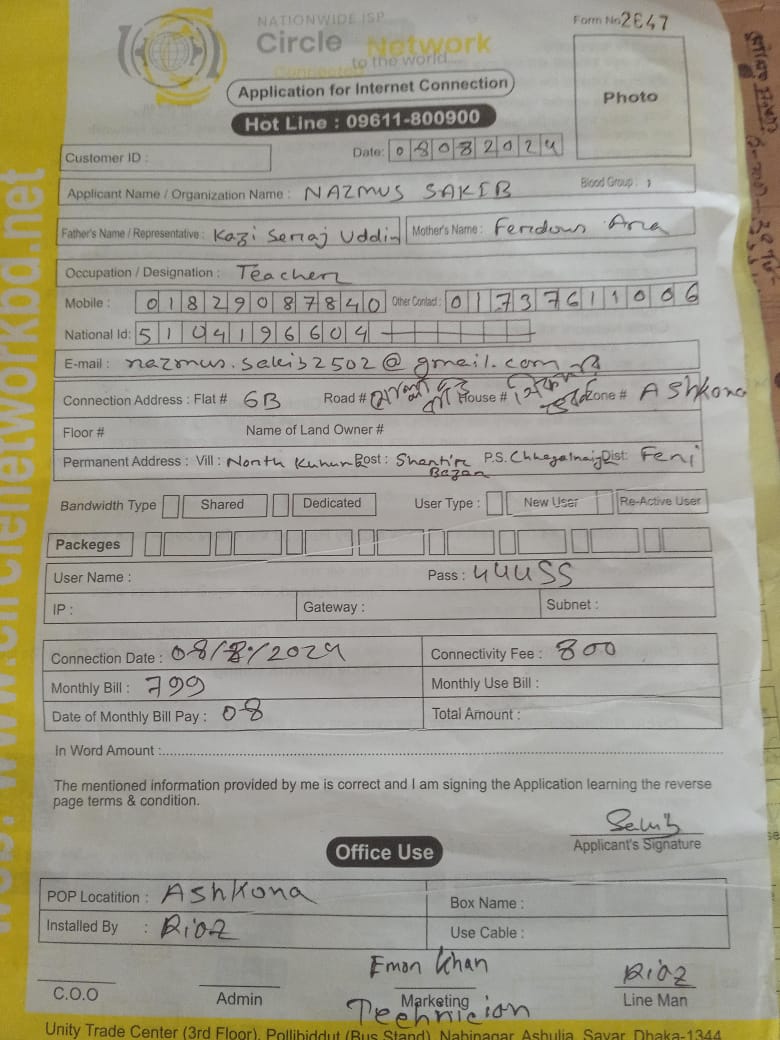 NATIONWIDE ISP
Form No 2647
Circle Network
Connected to the world....
Application for Internet Connection
Photo
Hot Line : 09611-800900
Customer ID :
Date: 08082024
Applicant Name / Organization Name : NAZMUS SAKIB Blood Group :
Father's Name / Representative : Kazi Serraj Uddin Mother's Name : Ferdous Ara
Occupation / Designation : Teacher
Mobile : 01829087840 Other Contact : 01737611006
National Id: 5104196604
E-mail : nazmus.sakib2502@gmail.com
Connection Address : Flat # 6B Road # House # Zone # Ashkona
Floor # Name of Land Owner #
Permanent Address : Vill : North Post : Shantir Bazar P.S. Chhagalnaiya Dist: Feni
Bandwidth Type Shared Dedicated User Type : New User Re-Active User
Packeges
User Name : Pass : 444SS
IP : Gateway : Subnet :
Connection Date : 08/8/2024 Connectivity Fee : 800
Monthly Bill : 799 Monthly Use Bill :
Date of Monthly Bill Pay : 08 Total Amount :
In Word Amount :
The mentioned information provided by me is correct and I am signing the Application learning the reverse
page terms & condition.
Sakib
Applicant's Signature
Office Use
POP Locatition : Ashkona Box Name :
Installed By : Riaz Use Cable :
Emon Khan Riaz
C.O.O Admin Marketing Line Man
Technician
Unity Trade Center (3rd Floor), Pollibiddut (Bus Stand), Nabinagar, Ashulia, Savar, Dhaka-1344
www.circlenetworkbd.net